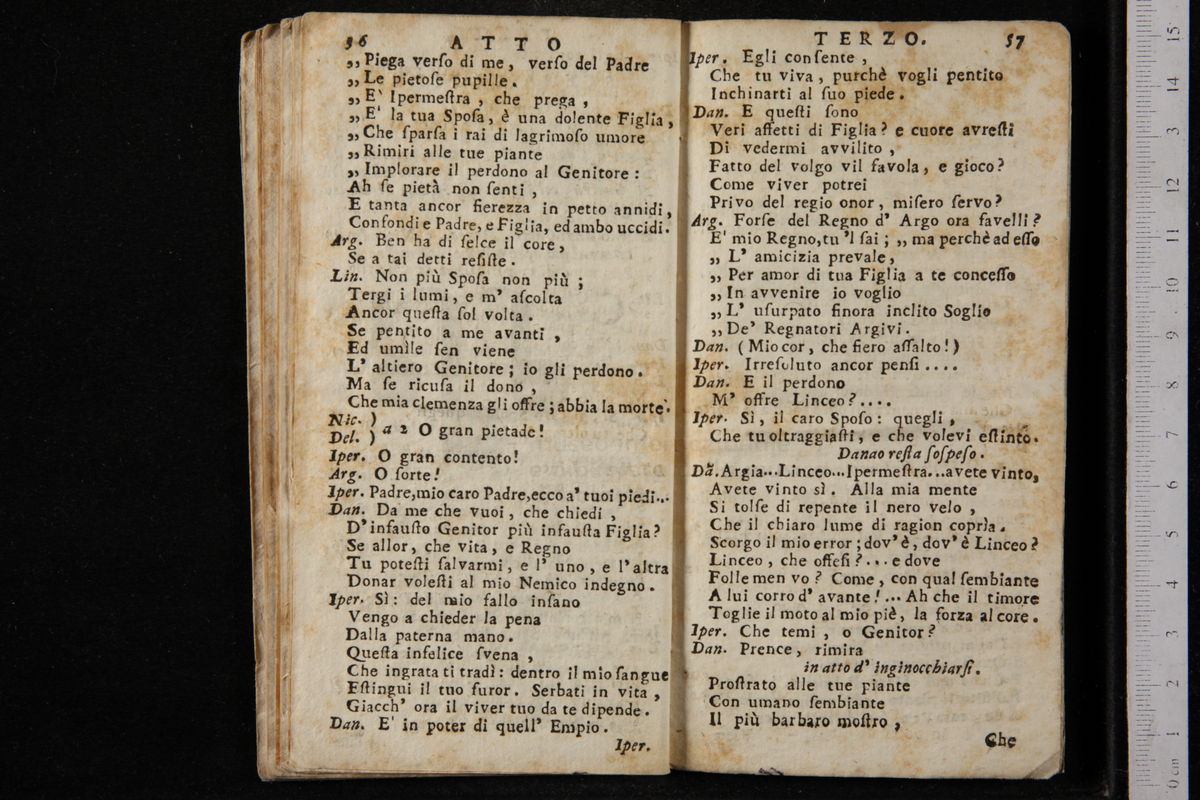 56 ATTO
„Piega verſo di me, verſo del Padre
„Le pietoſe pupille.
„E' Ipermeſtra, che prega,
„E' la tua Spoſa, è una dolente Figlia,
„Che ſparſa i rai di lagrimoſo umore
„Rimiri alle tue piante
„Implorare il perdono al Genitore:
Ah ſe pietà non ſenti,
E tanta ancor fierezza in petto annidi,
Confondi e Padre, e Figlia, ed ambo uccidi.
Arg. Ben ha di ſelce il core,
Se a tai detti reſiſte.
Lin. Non più Spoſa non più;
Tergi i lumi, e m' aſcolta
Ancor queſta ſol volta.
Se pentito a me avanti,
Ed umìle ſen viene
L' altiero Genitore; io gli perdono.
Ma ſe ricuſa il dono,
Che mia clemenza gli offre; abbia la morte.
Nic. )
Del. ) a 2 O gran pietade!
Iper. O gran contento!
Arg. O ſorte!
Iper. Padre, mio caro Padre, ecco a' tuoi piedi...
Dan. Da me che vuoi, che chiedi,
D' infauſto Genitor più infauſta Figlia?
Se allor, che vita, e Regno
Tu poteſti ſalvarmi, e l' uno, e l' altra
Donar voleſti al mio Nemico indegno.
Iper. Sì: del mio fallo inſano
Vengo a chieder la pena
Dalla paterna mano.
Queſta infelice ſvena,
Che ingrata ti tradì: dentro il mio ſangue
Eſtingui il tuo furor. Serbati in vita,
Giacch' ora il viver tuo da te dipende.
Dan. E' in poter di quell' Empio.
Iper.
TERZO. 57
Iper. Egli conſente,
Che tu viva, purchè vogli pentito
Inchinarti al ſuo piede.
Dan. E queſti ſono
Veri affetti di Figlia? e cuore avreſti
Di vedermi avvilito,
Fatto del volgo vil favola, e gioco?
Come viver potrei
Privo del regio onor, miſero ſervo?
Arg. Forſe del Regno d' Argo ora favelli?
E' mio Regno, tu 'l ſai; „ ma perchè adeſſo
„ L' amicizia prevale,
„ Per amor di tua Figlia a te conceſſo
„In avvenire io voglio
„L' uſurpato finora inclito Soglio
„De' Regnatori Argivi.
Dan. (Mio cor, che fiero aſſalto!)
Iper. Irreſoluto ancor penſi....
Dan. E il perdono
M' offre Linceo?....
Iper. Sì, il caro Spoſo: quegli,
Che tu oltraggiaſti, e che volevi eſtinto.
Danao reſta ſoſpeſo.
Dã. Argia... Linceo... Ipermeſtra... avete vinto,
Avete vinto sì. Alla mia mente
Si tolſe di repente il nero velo,
Che il chiaro lume di ragion coprìa.
Scorgo il mio error; dov' è, dov' è Linceo?
Linceo, che offeſi?... e dove
Folle men vo? Come, con qual ſembiante
A lui corro d' avante!... Ah che il timore
Toglie il moto al mio piè, la forza al core.
Iper. Che temi, o Genitor?
Dan. Prence, rimira
in atto d' inginocchiarſi.
Proſtrato alle tue piante
Con umano ſembiante
Il più barbaro moſtro,
Che